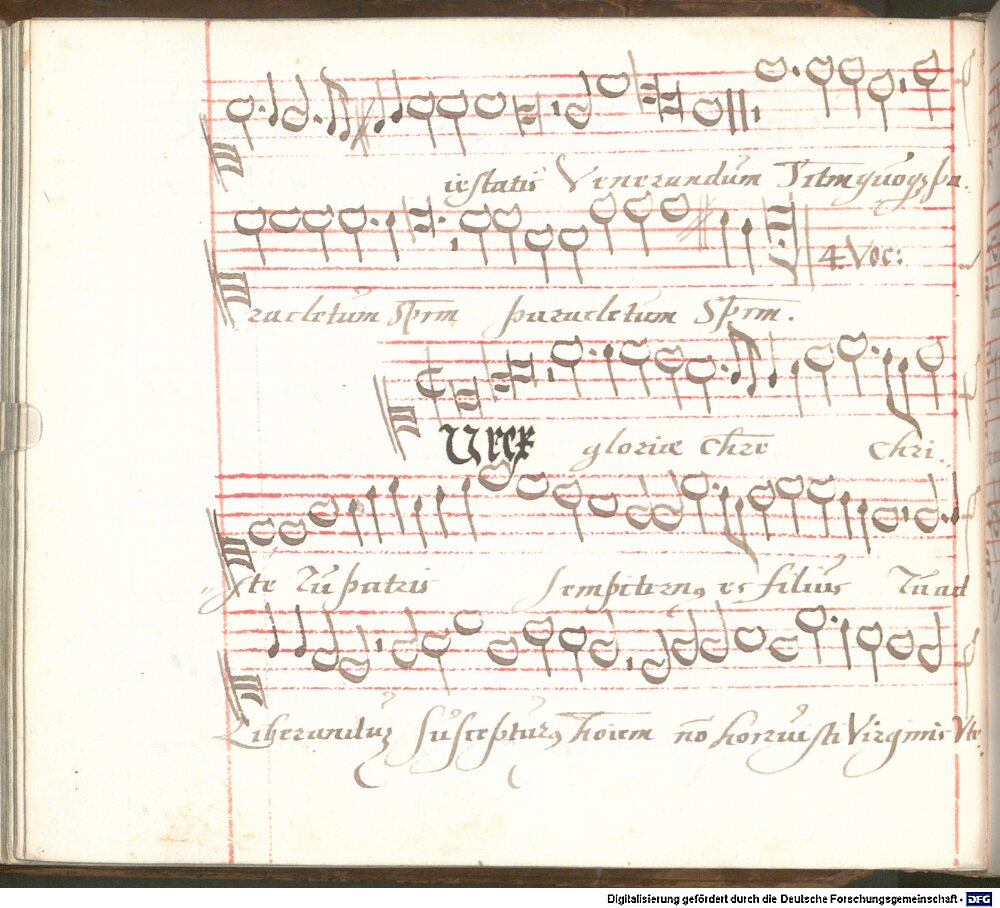 iestatis Venerandum Sctm quoqz pa.
racletum Sprm paracletum Sprm.
4. Voc:
U rex gloriæ Chre Chri..
ste Tu patris sempitern9 es filius Tu ad
Liberanduz suscepturꝰ hoiem nō horruisti Virginis Vte
Digitalisierung gefördert durch die Deutsche Forschungsgemeinschaft - DFG